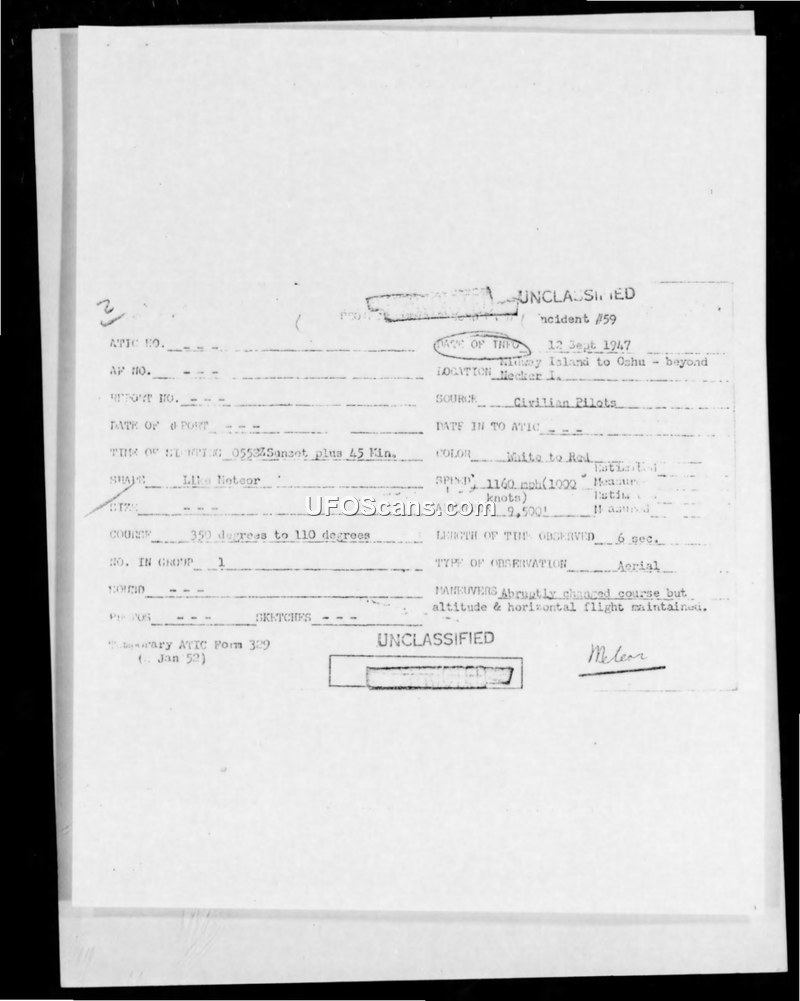 2
UNCLASSIFIED
Incident #59
ATIC NO. - - -
DATE OF INFO 12 Sept 1947
AF NO. - - -
LOCATION Midway Island to Oahu - beyond
Necker I.
REPORT NO. - - -
SOURCE Civilian Pilots
DATE OF REPORT - - -
DATE IN TO ATIC - - -
TIME OF SIGHTING 0558Z Sunset plus 45 Min.
COLOR White to Red
SHAPE Like Meteor
SPEED 1160 mph(1000 knots)
Estimated
Measured
SIZE - - -
9,500'
Estim
Measured
UFOScans.com
COURSE 350 degrees to 110 degrees
LENGTH OF TIME OBSERVED 6 sec.
NO. IN GROUP 1
TYPE OF OBSERVATION Aerial
SOUND - - -
MANEUVERS Abruptly changed course but
altitude & horizontal flight maintained.
PHOTOS - - - SKETCHES - - -
Temporary ATIC Form 329
( Jan 52)
UNCLASSIFIED
Meteor